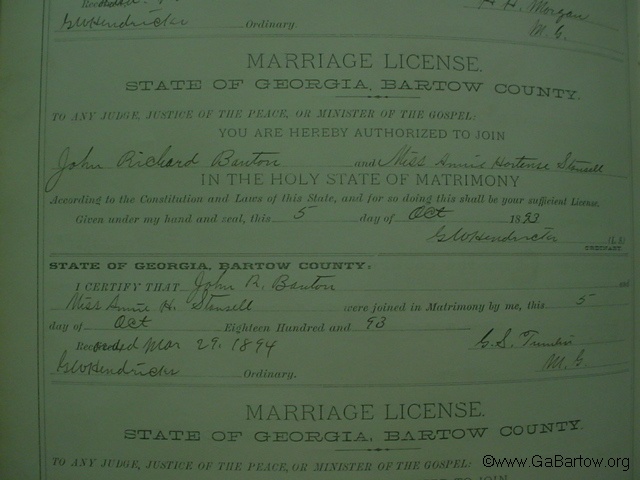 Recorded
H. H. Morgan
GWHendricks Ordinary. M. G.
MARRIAGE LICENSE.
STATE OF GEORGIA, BARTOW COUNTY.
TO ANY JUDGE, JUSTICE OF THE PEACE, OR MINISTER OF THE GOSPEL:
YOU ARE HEREBY AUTHORIZED TO JOIN
John Richard Banton and Miss Annie Hortense Stansell
IN THE HOLY STATE OF MATRIMONY
According to the Constitution and Laws of this State, and for so doing this shall be your sufficient License.
Given under my hand and seal, this 5 day of Oct 1893
GWHendricks (L. S)
ORDINARY.
STATE OF GEORGIA, BARTOW COUNTY:
I CERTIFY THAT John R. Banton and
Miss Annie H. Stansell were joined in Matrimony by me, this 5
day of Oct Eighteen Hundred and 93
Recorded Mar 29. 1894 G. S. Tumlin
GWHendricks Ordinary. M. G
MARRIAGE LICENSE.
STATE OF GEORGIA, BARTOW COUNTY.
TO ANY JUDGE, JUSTICE OF THE PEACE, OR MINISTER OF THE GOSPEL:
©www.GaBartow.org